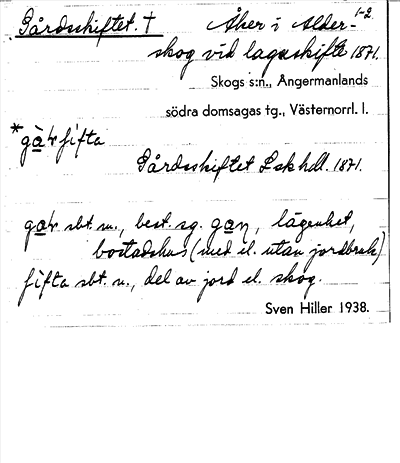 Gårdsskiftet. † Åker i Alder- 1-2
skog vid lagaskifte 1871.
Skogs s:n., Ångermanlands
södra domsagas tg., Västernorrl. l.
*gàrʃifta
Gårdsskiftet Lskhdl. 1871.
gar sbt. m., best. sg. gaɳ, lägenhet,
bostadshus (med el. utan jordbruk)
ʃifta sbt. n., del av jord el. skog.
Sven Hiller 1938.